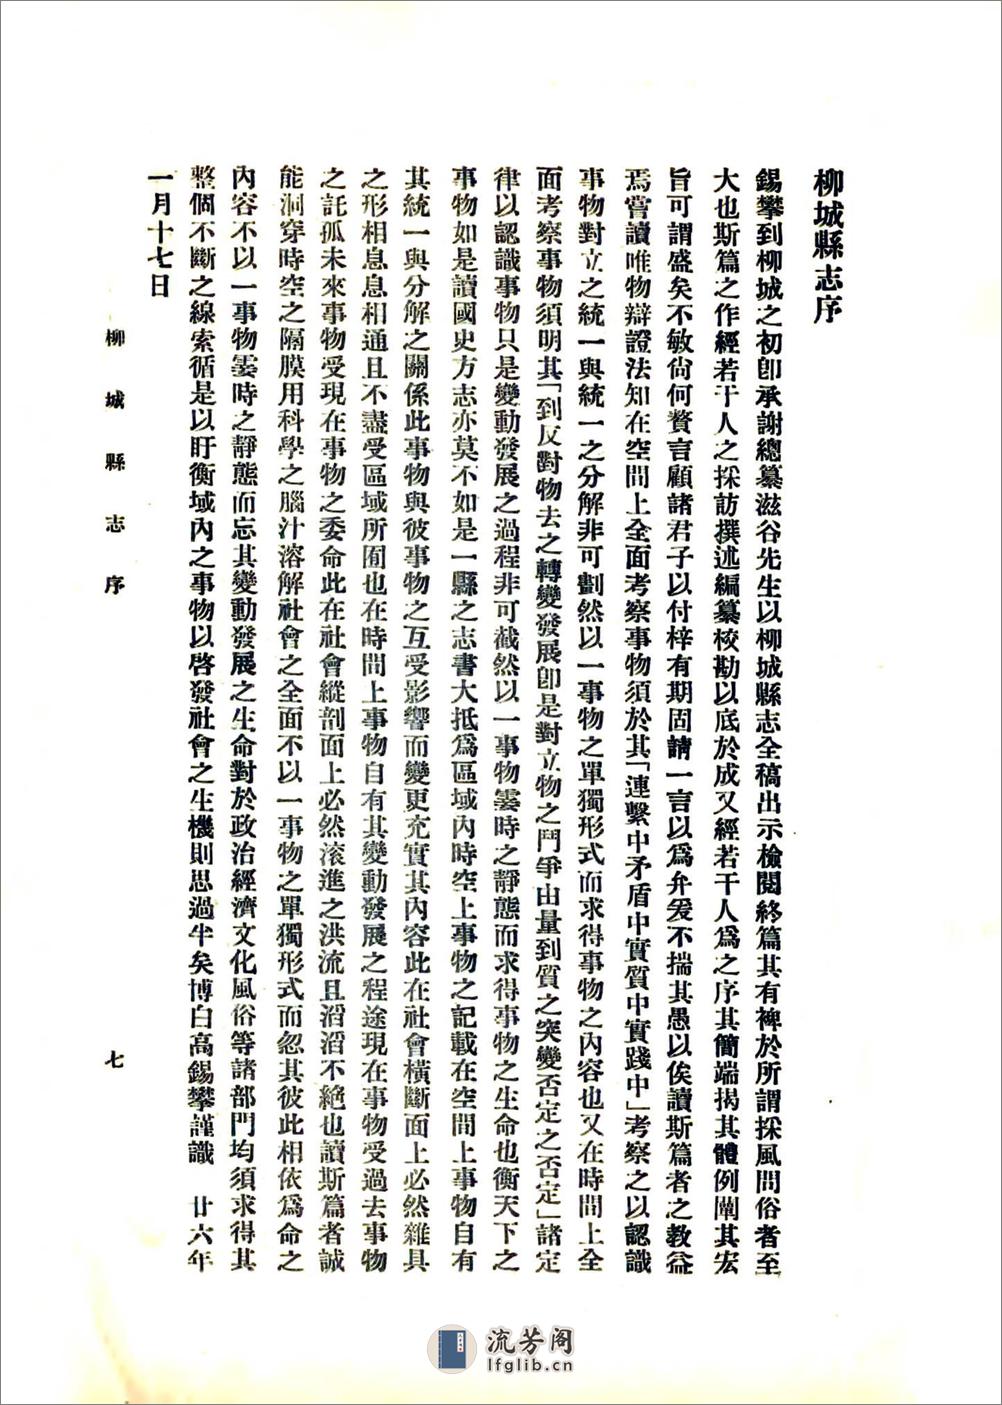 柳城縣志序
錫攀到柳城之初卽承謝總纂滋谷先生以柳城縣志全稿出示檢閱終篇其有裨於所謂採風問俗者至
大也斯篇之作經若干人之採訪撰述編纂校勘以底於成又經若干人爲之序其簡端揭其體例闡其宏
旨可謂盛矣不敏尙何贅言顧諸君子以付梓有期固請一言以爲弁爰不揣其愚以俟讀斯篇者之教益
焉嘗讀唯物辯證法知在空間上全面考察事物須於其「連繫中矛盾中實質中實踐中」考察之以認識
事物對立之統一與統一之分解非可劃然以一事物之單獨形式而求得事物之內容也又在時間上全
面考察事物須明其「到反對物去之轉變發展卽是對立物之鬥爭由量到質之突變否定之否定」諸定
律以認識事物只是變動發展之過程非可截然以一事物霎時之靜態而求得事物之生命也衡天下之
事物如是讀國史方志亦莫不如是一縣之志書大抵爲區域內時空上事物之記載在空間上事物自有
其統一與分解之關係此事物與彼事物之互受影響而變更充實其內容此在社會橫斷面上必然雜具
之形相息息相通且不盡受區域所囿也在時間上事物自有其變動發展之程途現在事物受過去事物
之託孤未來事物受現在事物之委命此在社會縱剖面上必然滚進之洪流且滔滔不絕也讀斯篇者誠
能洞穿時空之隔膜用科學之腦汁溶解社會之全面不以一事物之單獨形式而忽其彼此相依爲命之
內容不以一事物霎時之靜態而忘其變動發展之生命對於政治經濟文化風俗等諸部門均須求得其
整個不斷之線索循是以盱衡域內之事物以啓發社會之生機則思過半矣博白高錫攀謹識　廿六年
一月十七日
柳城縣志序
七
流芳阁
lfglib.cn